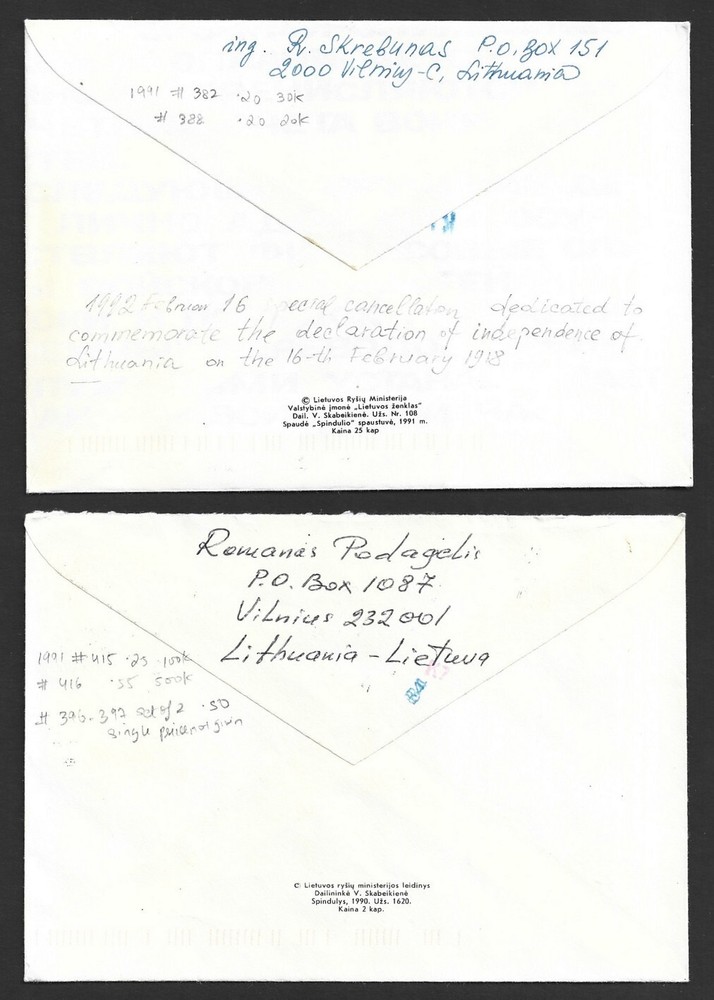 ing. R. Skrebunas P.O. Box 151
2000 Vilnius-C, Lithuania
1991 # 382 .20 30K
# 388 .20 20K
1992 Februar 16 special cancellation dedicated to
commemorate the declaration of independence of
Lithuania on the 16-th February 1918
© Lietuvos Ryšių Ministerija
Valstybinė įmonė „Lietuvos ženklas“
Dail. V. Skabeikienė. Užs. Nr. 108
Spaudė „Spindulio“ spaustuvė, 1991 m.
Kaina 25 kap
Romanas Podagėlis
P.O. Box 1087
Vilnius 232001
Lithuania - Lietuva
1991 # 415 .25 100K
# 416 .55 500K
# 396-397 set of 2 .50
single price not givin
© Lietuvos ryšių ministerijos leidinys
Dailininkė V. Skabeikienė
Spindulys, 1990. Užs. 1620.
Kaina 2 kap.